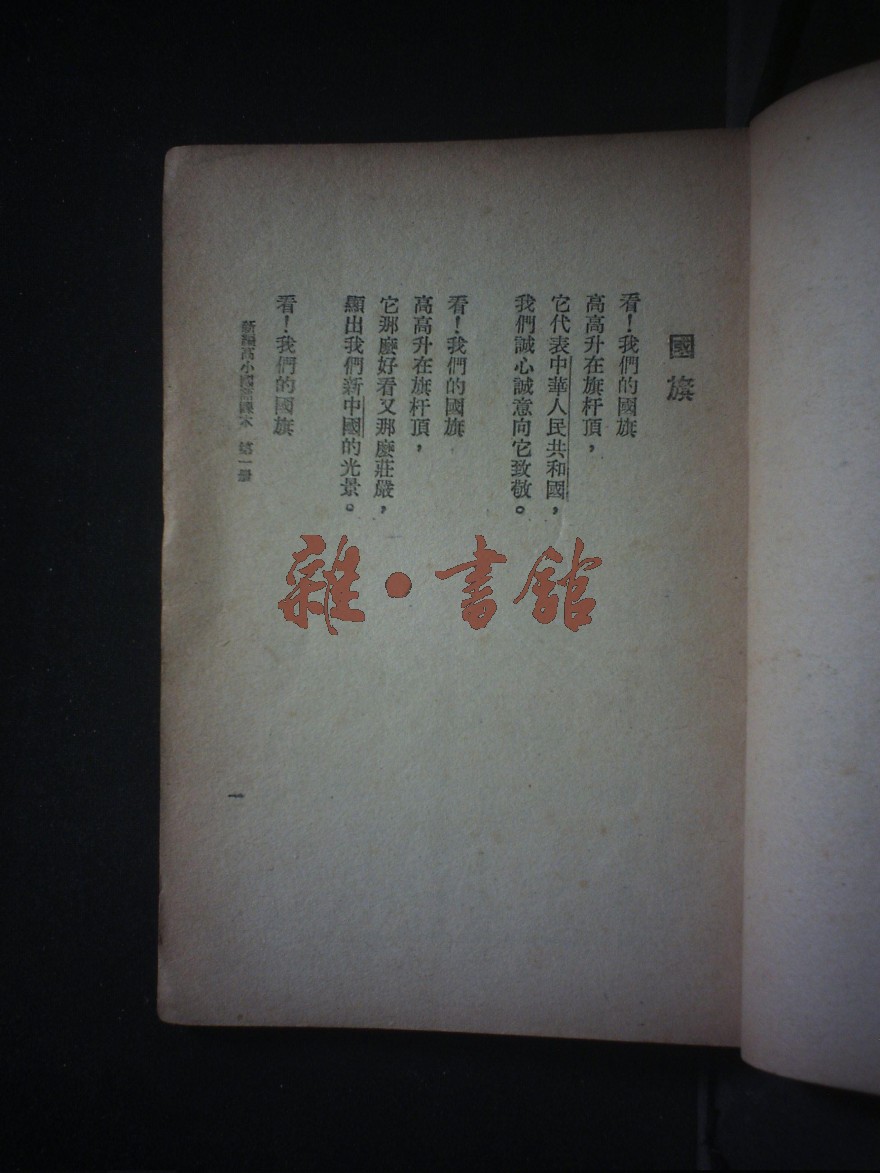 國旗
看！我們的國旗
高高升在旗杆頂，
它代表中華人民共和國，
我們誠心誠意向它致敬。
看！我們的國旗
高高升在旗杆頂，
它那麼好看又那麼莊嚴，
顯出我們新中國的光景。
看！我們的國旗
新疆高小國語課本 第一册
一
雜·書館